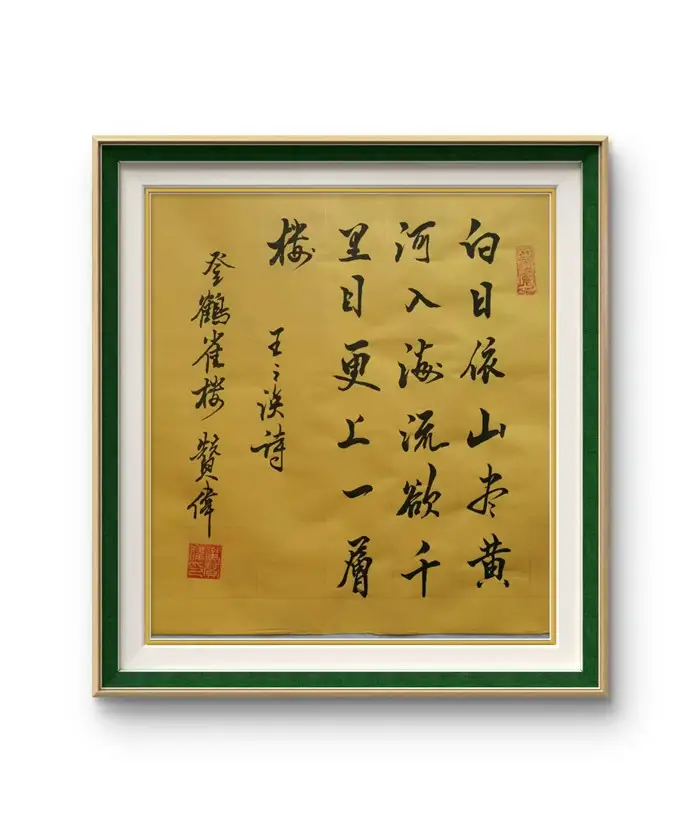 白日依山尽黄
河入海流欲千
里目更上一層
楼
王之涣詩
登鶴雀楼 贊偉